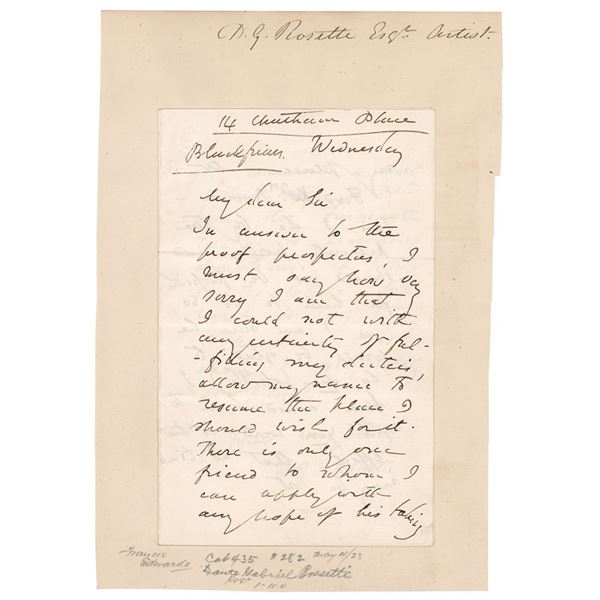 D. G. Rosette Esqr. Artist.
14 Chatham Place
Blackfriars. Wednesday
My dear Sir
In answer to the
proof prospectus, I
must say how very
sorry I am that
I could not with
any certainty of ful-
-filling my duties,
allow my name to
resume the place I
should wish for it.
There is only one
friend to whom I
can apply with
any hope of his taking
Francis
Edwards
Cat 435 # 282 May 21/23
Dante Gabriel Rossetti